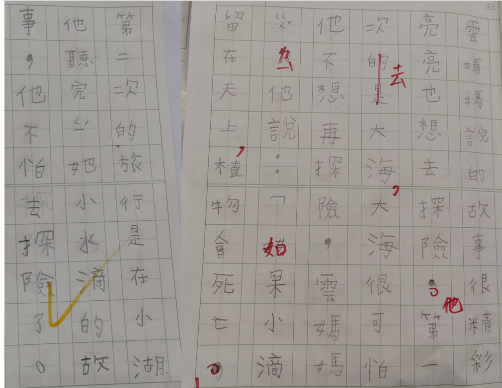 雲媽媽說的故事很精彩
亮亮也想去探險。他第一
次的是去大海,大海很可怕
他不想再探險,雲媽媽
他說:「如果小滴
留在天上,植物會死亡。
第二次的旅行是在小湖
他聽完她小水滴的故
事,他不怕去探險了。